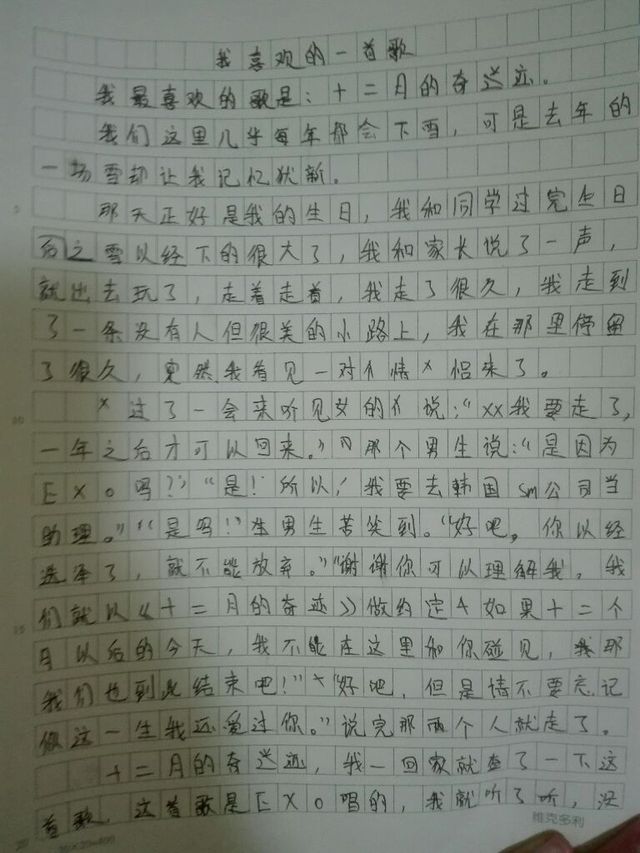 我喜欢的一首歌
我最喜欢的歌是：十二月的奇迹。
我们这里几乎每年都会下雪，可是去年的
一场雪却让我记忆犹新。
那天正好是我的生日，我和同学过完生日
后之雪以经下的很大了，我和家长说了一声，
就出去玩了，走着走着，我走了很久，我走到
了一条没有人但很美的小路上，我在那里停留
了很久，突然我看见一对情侣来了。
过了一会来听见女的说：“xx我要走了，
一年之后才可以回来。”那个男生说：“是因为
EXO吗？”“是！所以！我要去韩国sm公司当
助理。”“是吗！”男生苦笑到。“好吧，你以经
选泽了，就不能放弃。”“谢谢你可以理解我，我
们就以《十二月的奇迹》做约定如果十二个
月以后的今天，我不能在这里和你碰见，我那
我们也到此结束吧！”“好吧，但是情不要忘记
你这一生我还爱过你。”说完那两个人就走了。
十二月的奇迹，我一回家就查了一下这
首歌，这首歌是EXO唱的，我就听了听，没
20×20=400
维克多利